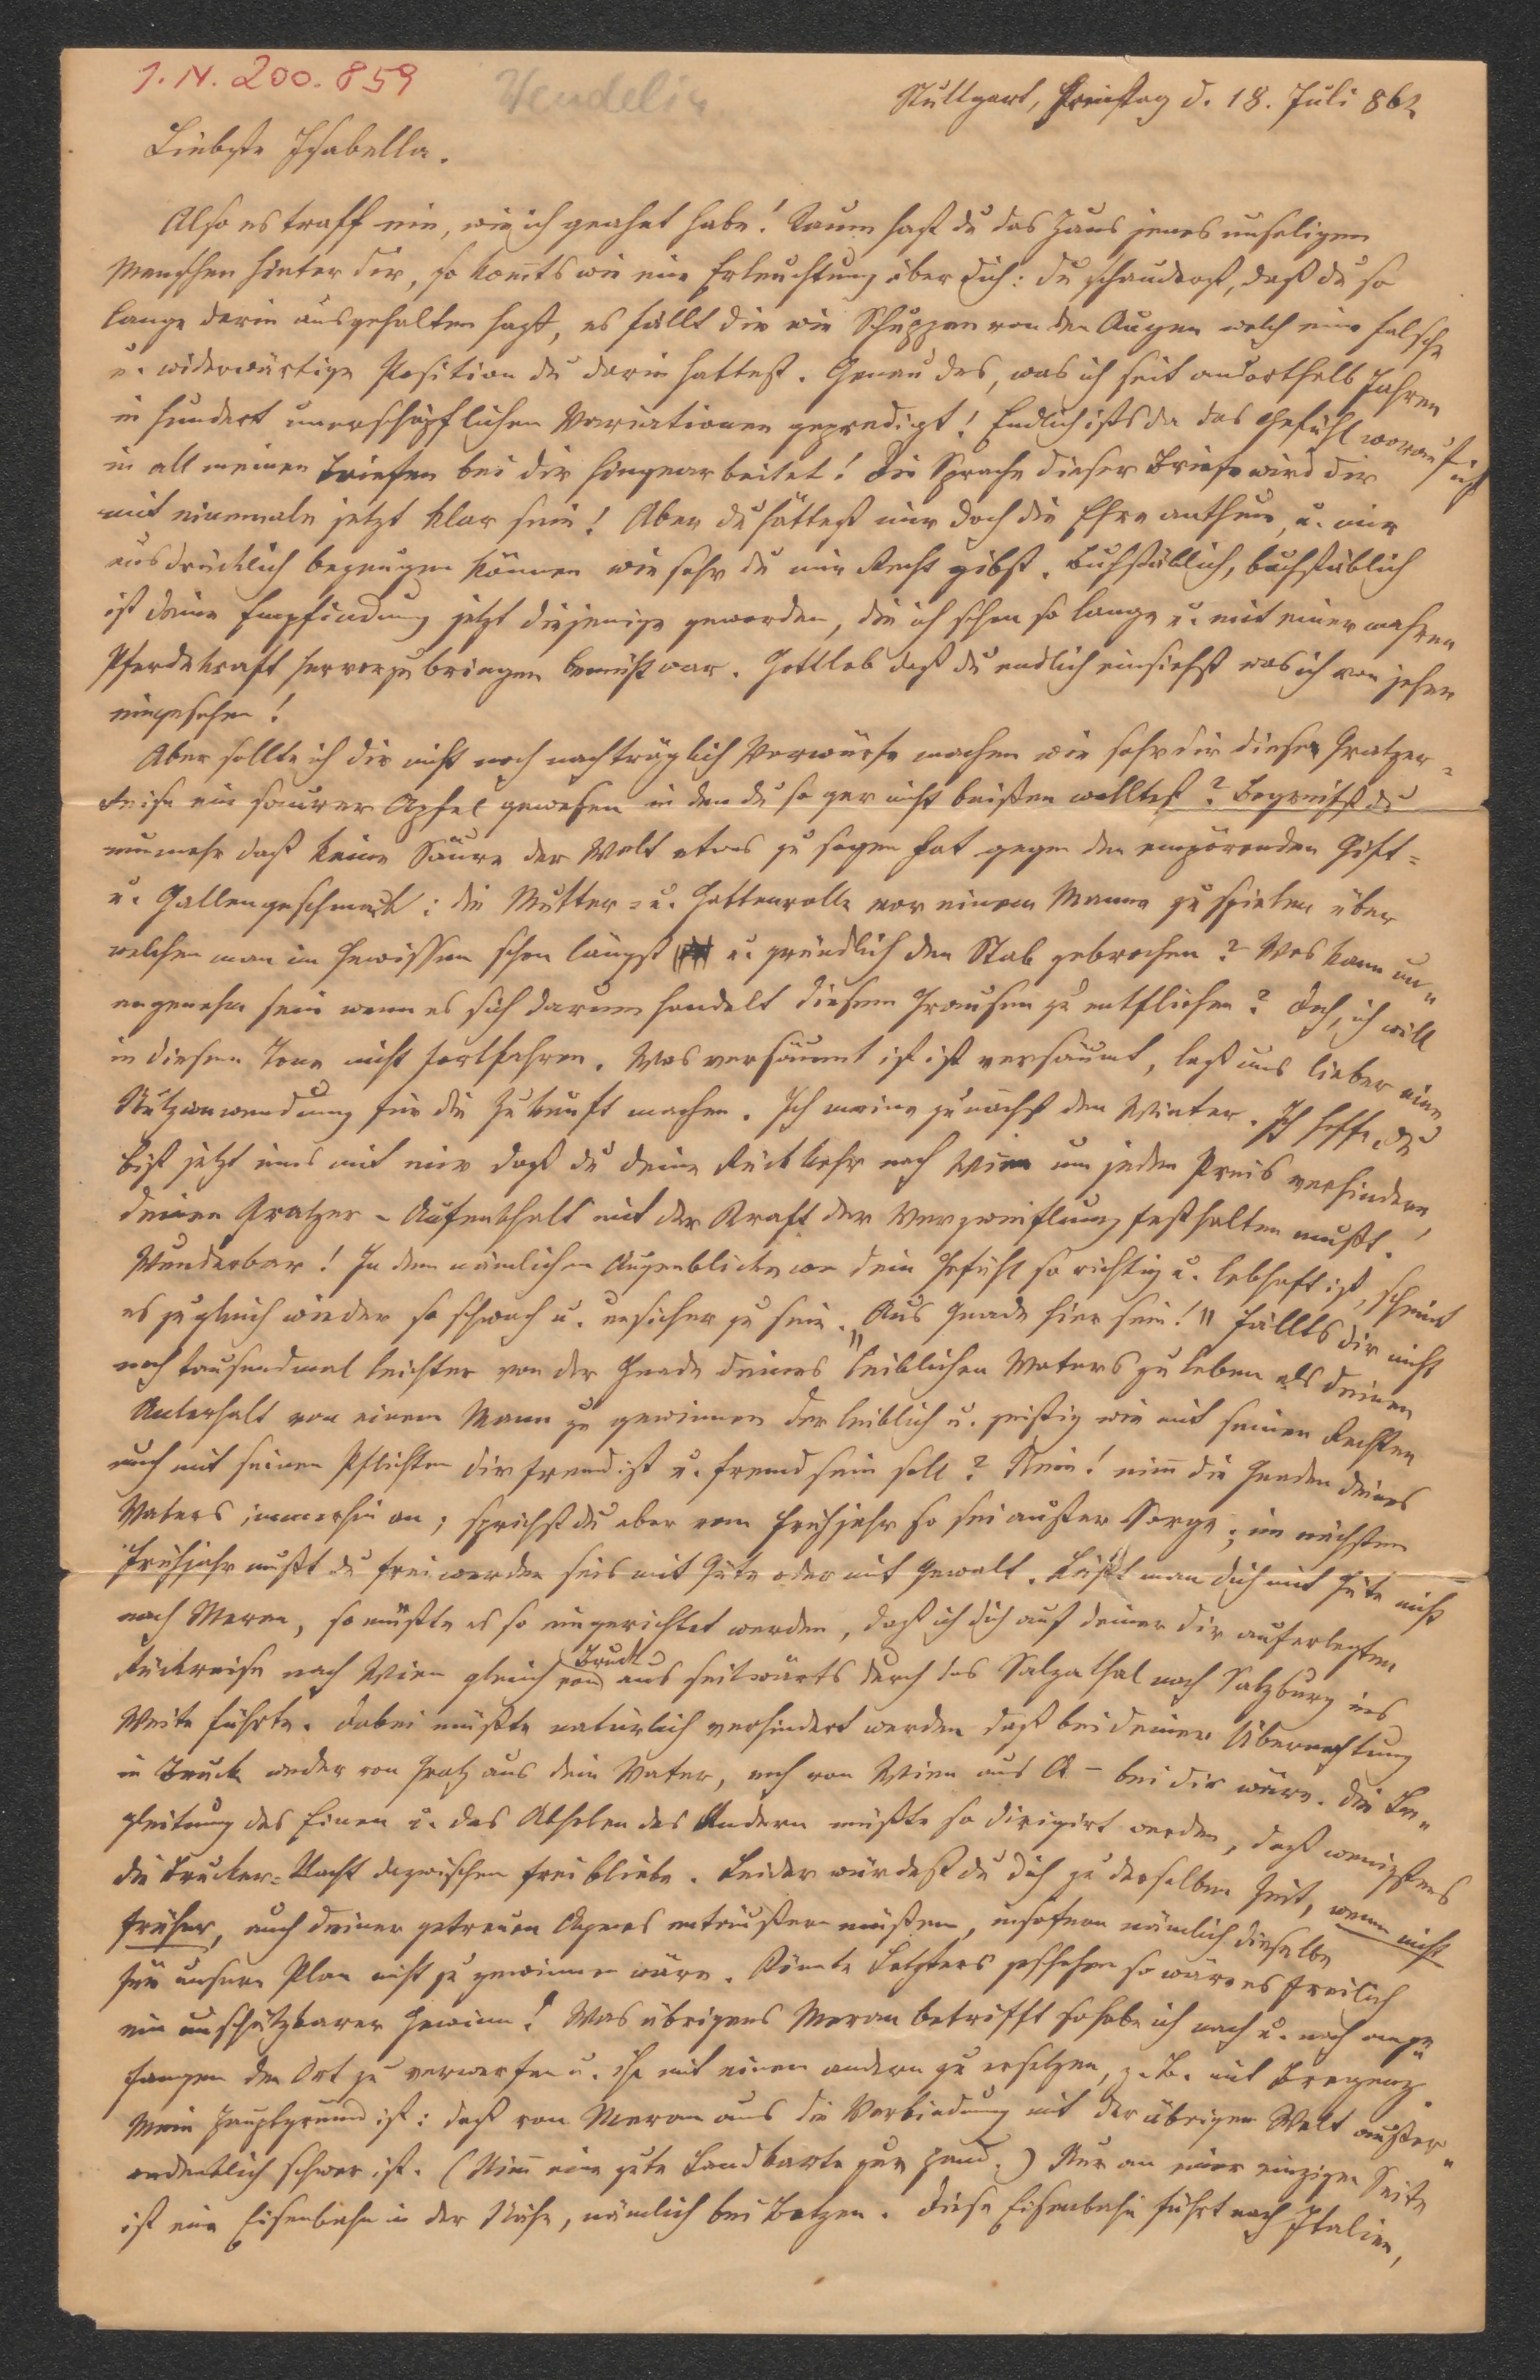 I. N. 200.859
Wendelin
Stuttgart, Freitag d. 18. Juli 862
Liebste Isabella.
Also es traff ein, wie ich geahnt habe! Kaum hast du das Haus jenes unseligen
Menschen hinter dir, so komts wie eine Erleuchtung über dich: du schauderst, daß du so
lange darin ausgehalten hast, es fällt dir wie Schuppen von den Augen welch eine falsche
u. widerwärtige Position du darin hattest. Genau das, was ich seit anderthalb Jahren
in hundert unerschöpflichen Variationen gepredigt! Endlich ists da das Gefühl worauf ich
in all meinen Briefen bei dir hingearbeitet! Die Sprache dieser Briefe wird dir
mit einemale jetzt klar sein! Aber du hättest mir doch die Ehre anthun, u. mir
ausdrücklich bezeugen können wie sehr du mir Recht gibst. Buchstäblich, buchstäblich
ist deine Empfindung jetzt diejenige geworden, die ich schon so lange u. mit einer wahren
Pferdekraft hervorzubringen bemüht war. Gottlob daß du endlich einsiehst was ich von jeher
eingesehen!
Aber sollte ich dir nicht noch nachträglich Vorwürfe machen wie sehr dir diese Gratzer-
Reise ein saurer Apfel gewesen in den du so gar nicht beißen wolltest? Begreifst du
nunmehr daß keine Säure der Welt etwas zu sagen hat gegen den empörenden Gift-
u. Gallengeschmack: die Mutter- u. Gattenrolle vor einem Manne zu spielen über
welchen man im Gewissen schon längst u. gründlich den Stab gebrochen? Was kann un-
angenehm sein wenn es sich darum handelt diesem Grausen zu entfliehen? Doch, ich will
in diesem Tone nicht fortfahren. Was versäumt ist ist versäumt, laß uns lieber eine
Nutzanwendung für die Zukunft machen. Ich meine zunächst den Winter. Ich hoffe du
bist jetzt eins mit mir daß du deine Rückkehr nach Wien um jeden Preis verhindern,
deinen Gratzer-Aufenthalt mit der Kraft der Verzweiflung festhalten mußt.
Wunderbar! In dem nämlichen Augenblicke wo dein Gefühl so richtig u. lebhaft ist, scheint
es zugleich wieder so schwach u. unsicher zu sein. „Aus Gnade hier sein!" Fällts dir nicht
noch tausendmal leichter von der Gnade deines leiblichen Vaters zu leben als deinen
Unterhalt von einem Mann zu gewinnen der leiblich u. geistig wie mit seinen Rechten
auch mit seinen Pflichten dir fremd ist u. fremd sein soll? Nein! nim die Gnaden deines
Vaters immerhin an; sprichst du aber vom Frühjahr so sei außer Sorge; im nächsten
Frühjahr mußt du frei werden seis mit Güte oder mit Gewalt. Läßt man dich mit Güte nicht
nach Meran, so müßte es so eingerichtet werden, daß ich dich auf deiner dir auferlegten
Rückreise nach Wien gleich von Bruck aus seitwärts durch das Salzathal nach Salzburg ins
Weite führte. Dabei müßte natürlich verhindert werden daß bei deiner Übernachtung
in Bruck weder von Gratz aus dein Vater, noch von Wien aus A – bei dir wäre. Die Be-
gleitung des Einen u. das Abholen des Andern müßte so dirigirt werden, daß wenigstens
die Brucker-Nacht dazwischen frei bliebe. Leider würdest du dich zu derselben Zeit, wenn nicht
früher, auch deiner getreuen Agnes entäußern müßen, insofern nämlich dieselbe
für unsern Plan nicht zu gewinnen wäre. Könnte Letzteres geschehen so wäre es freilich
ein unschätzbarer Gewinn! Was übrigens Meran betrifft so habe ich nach u. nach ange-
fangen den Ort zu verwerfen u. ihn mit einem andern zu ersetzen, z. B. mit Bregenz.
Mein Hauptgrund ist: daß von Meran aus die Verbindung mit der übrigen Welt außer-
ordentlich schwer ist. (Nim eine gute Landkarte zur Hand.) Nur an einer einzigen Seite
ist eine Eisenbahn in der Nähe, nämlich bei Botzen. Diese Eisenbahn führt nach Italien,